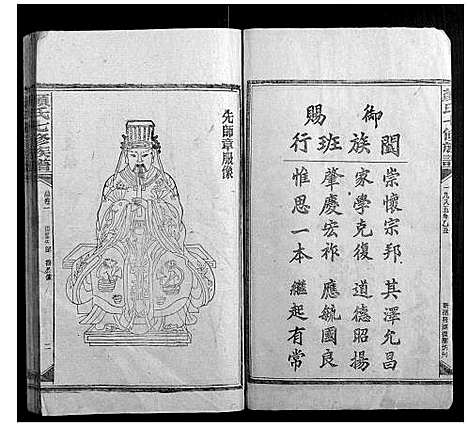 御
賜
闔族班行
崇懷宗邦　其澤允昌
家學克復　道德昭揚
肇慶宏祚　應毓國良
惟思一本　繼起有常
先師章服像
顏氏七修族譜